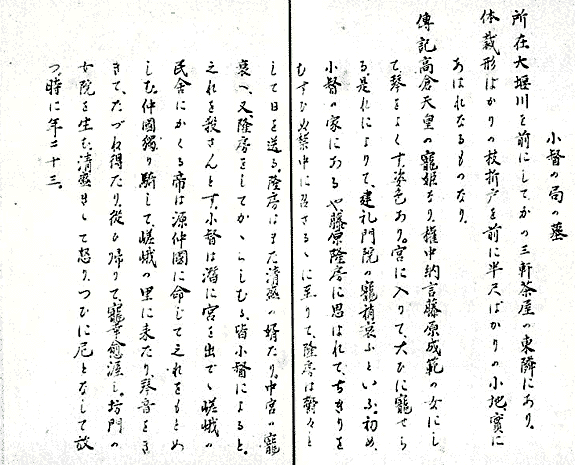 小督の局の墓
所在大堰川を前にしてかの三軒茶屋の東隣にあり。
体裁形ばかりの枝折戸を前に半尺ばかりの小地、實に
あはれなるものなり。
傳記高倉天皇の寵姫なり權中納言藤原成範の女にし
て琴をよくす、姿色あり。宮に入りて大ひに寵せら
る、是れによりて、建礼門院の寵稍衰ふといふ、初め、
小督の家にあるや藤原隆房に思はれて、ちぎりを
むすひぬ禁中に召さるゝに至りて、隆房は欝々と
して日を送る。隆房はまた清盛の婿たり。中宮の寵
衰へ、又隆房をしてかゝらしむる、皆小督によると。
之れを殺さんとす、小督は潜に宮を出でゝ嵯峨の
民舎にかくる帝は源仲國に命じて之れをもとめ
しむ。仲國綱り騎して、嵯峨の里に来たり、琴音をき
きて、たづね得たり、後ひ帰りて、寵幸愈渥し。坊門の
女院を生む、清盛きゝて怒り、つひに尼となして放
つ、時に年二十三。